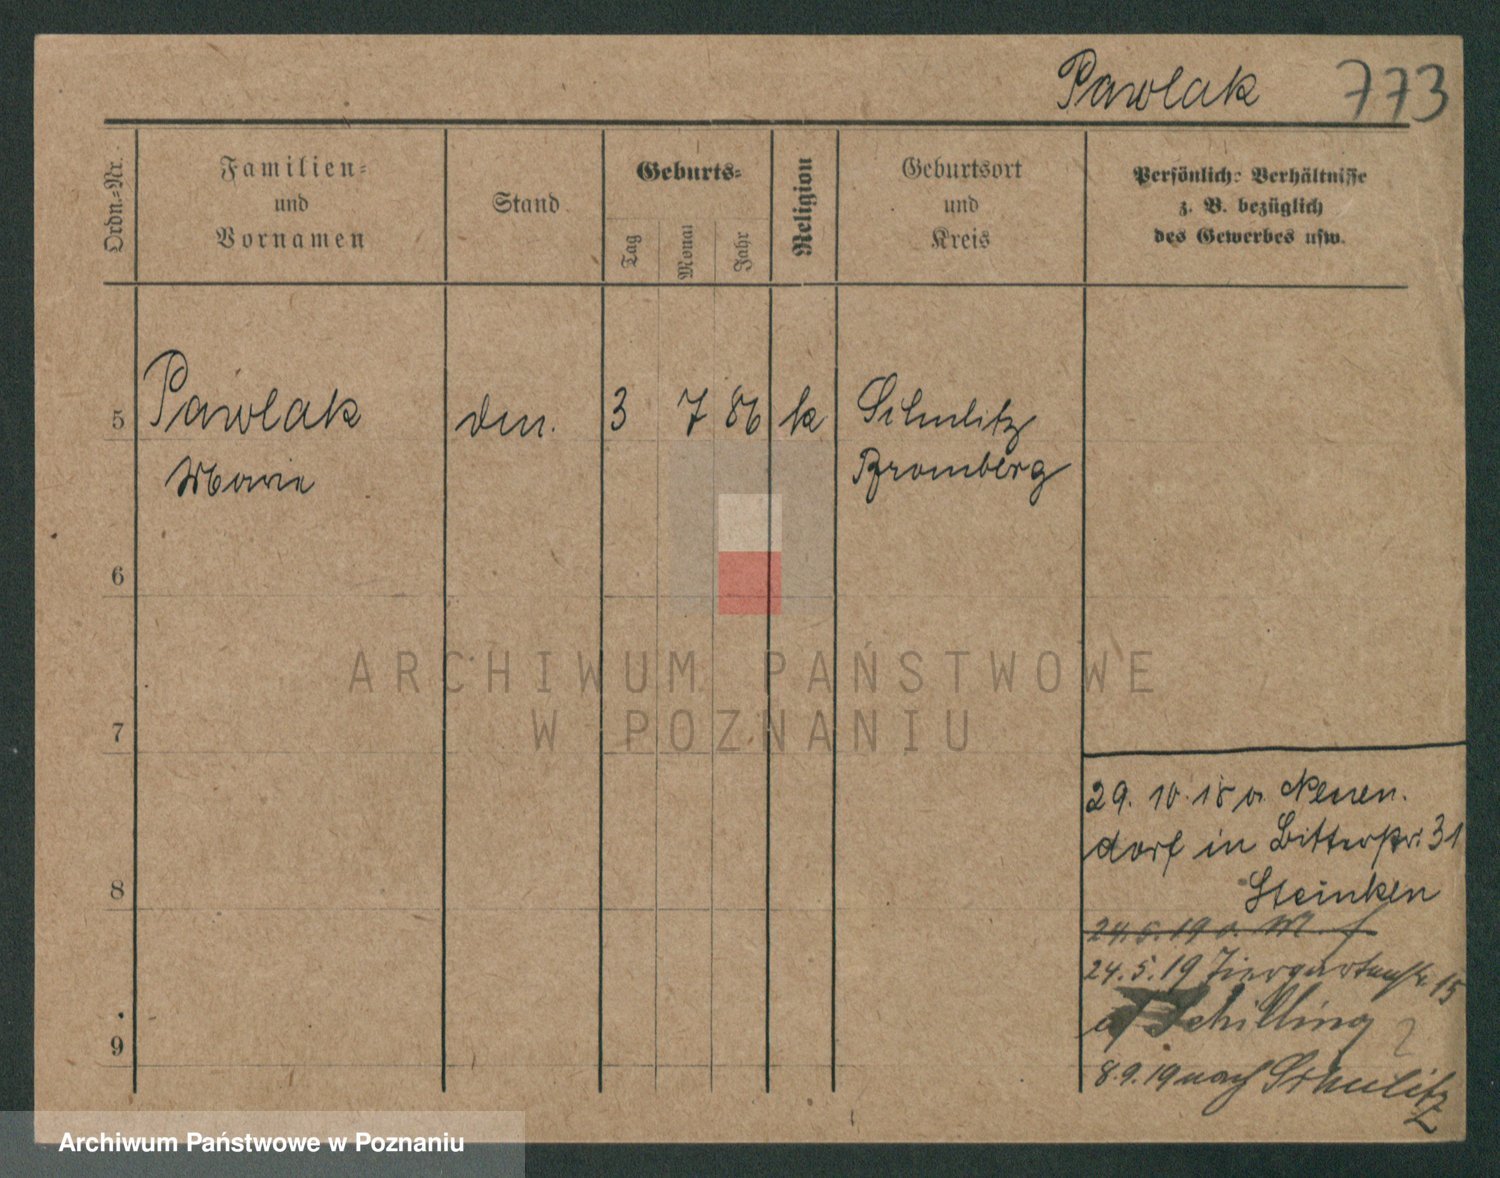 Pawlak 773
Ordn.-Nr.
Familien-
und
Vornamen
Stand
Geburts-
Tag
Monat
Jahr
Religion
Geburtsort
und
Kreis
Persönliche Verhältnisse
z. B. bezüglich
des Gewerbes usw.
5
Pawlak
Marie
3 7 86
k
Schulitz
Bromberg
6
7
8
9
29. 10. 18 v. Neuen-
dorf in Bitterstr. 31
Steinken
24. 5. 19
24. 5. 19 Tiergartenstr. 15
Schilling
8. 9. 19 nach Schulitz
ARCHIWUM PAŃSTWOWE
W POZNANIU
Archiwum Państwowe w Poznaniu